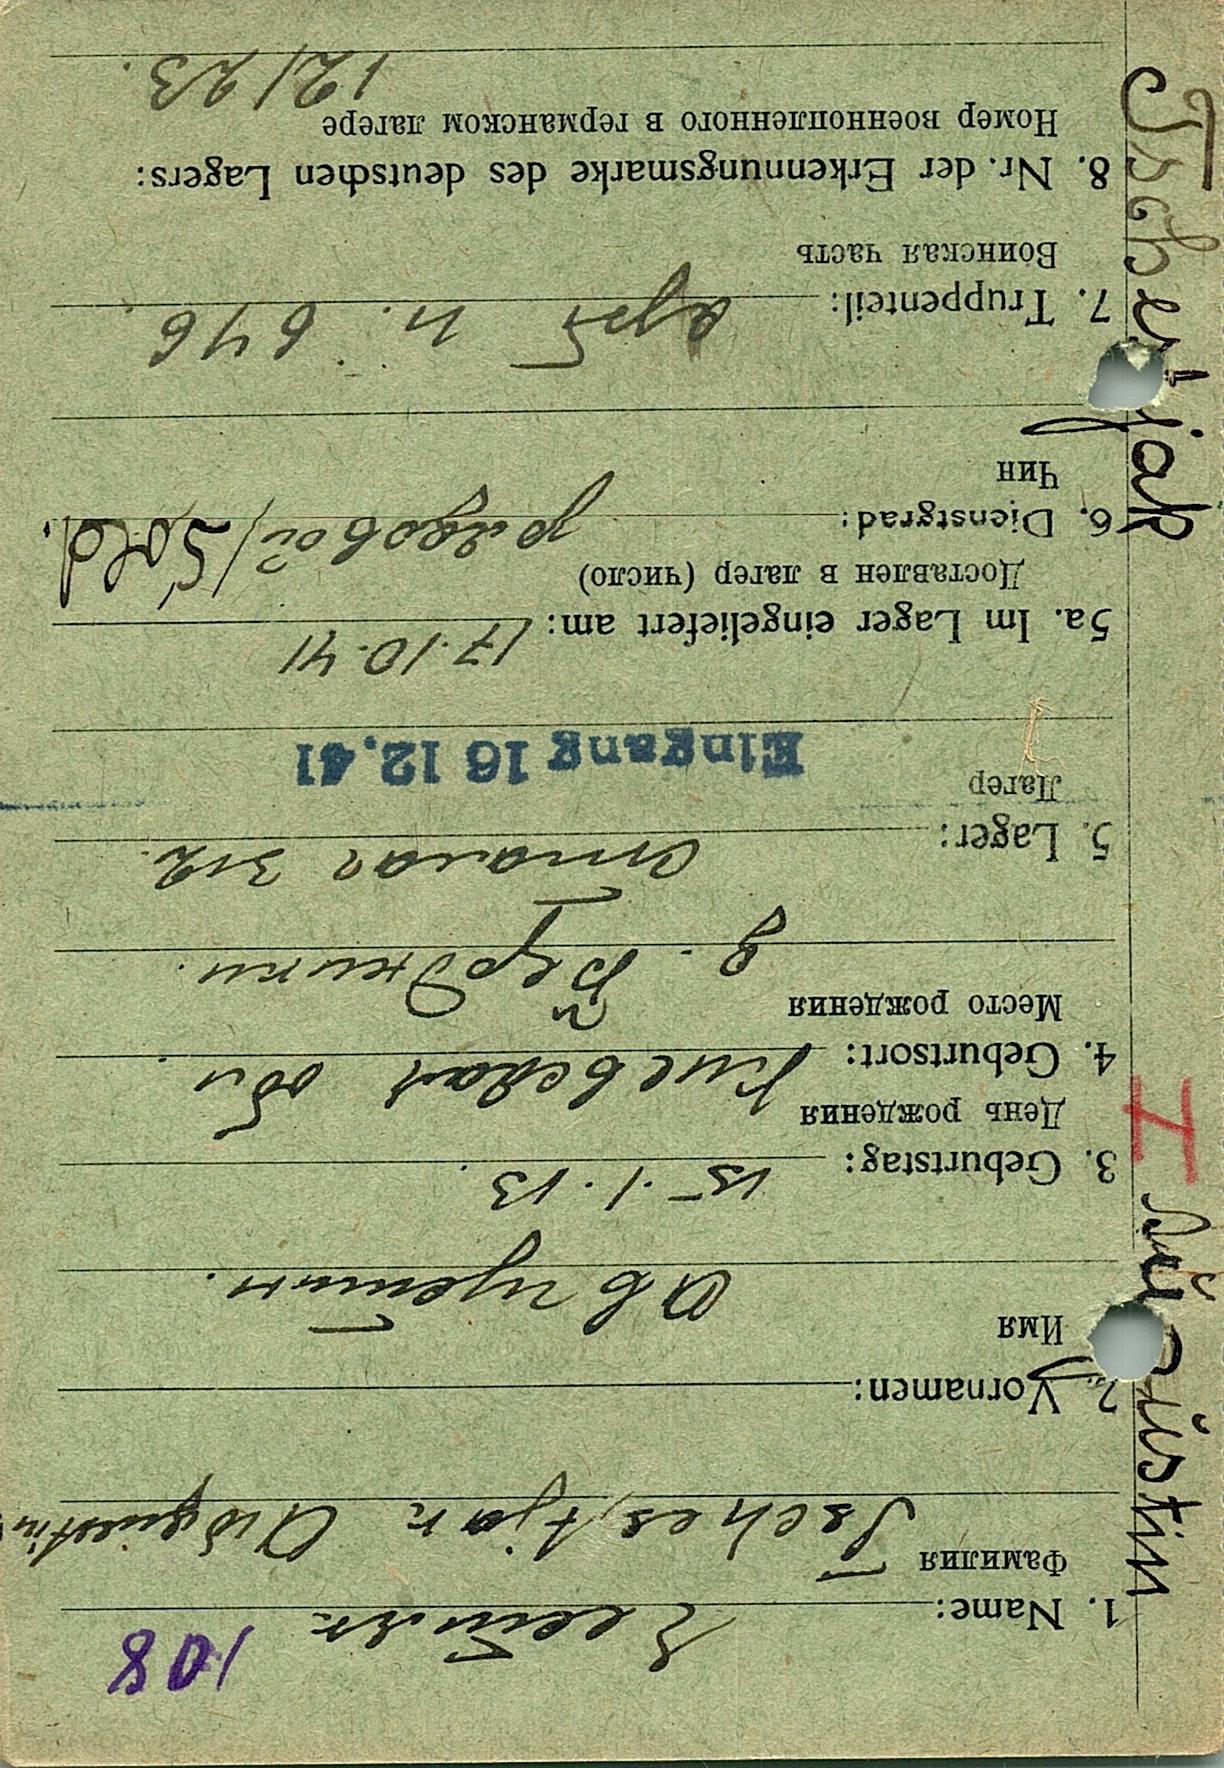 108
1. Name: Честяк
Фамилия
Tschestjak Awgustin
2. Vornamen:
Имя
Августин.
3. Geburtstag: 15.1.13.
День рождения
4. Geburtsort: Киевская обл.
Место рождения
5. Lager: сталаг 312.
Лагер
Eingang 16 12.41
5a. Im Lager eingeliefert am: 17.10.41
Доставлен в лагер (число)
6. Dienstgrad: рядовой / Sold.
Чин
7. Truppenteil: арт п. 646.
Воинская часть
8. Nr. der Erkennungsmarke des deutschen Lagers:
Номер военнопленного в германском лагере
12123.
Tschestjak
I